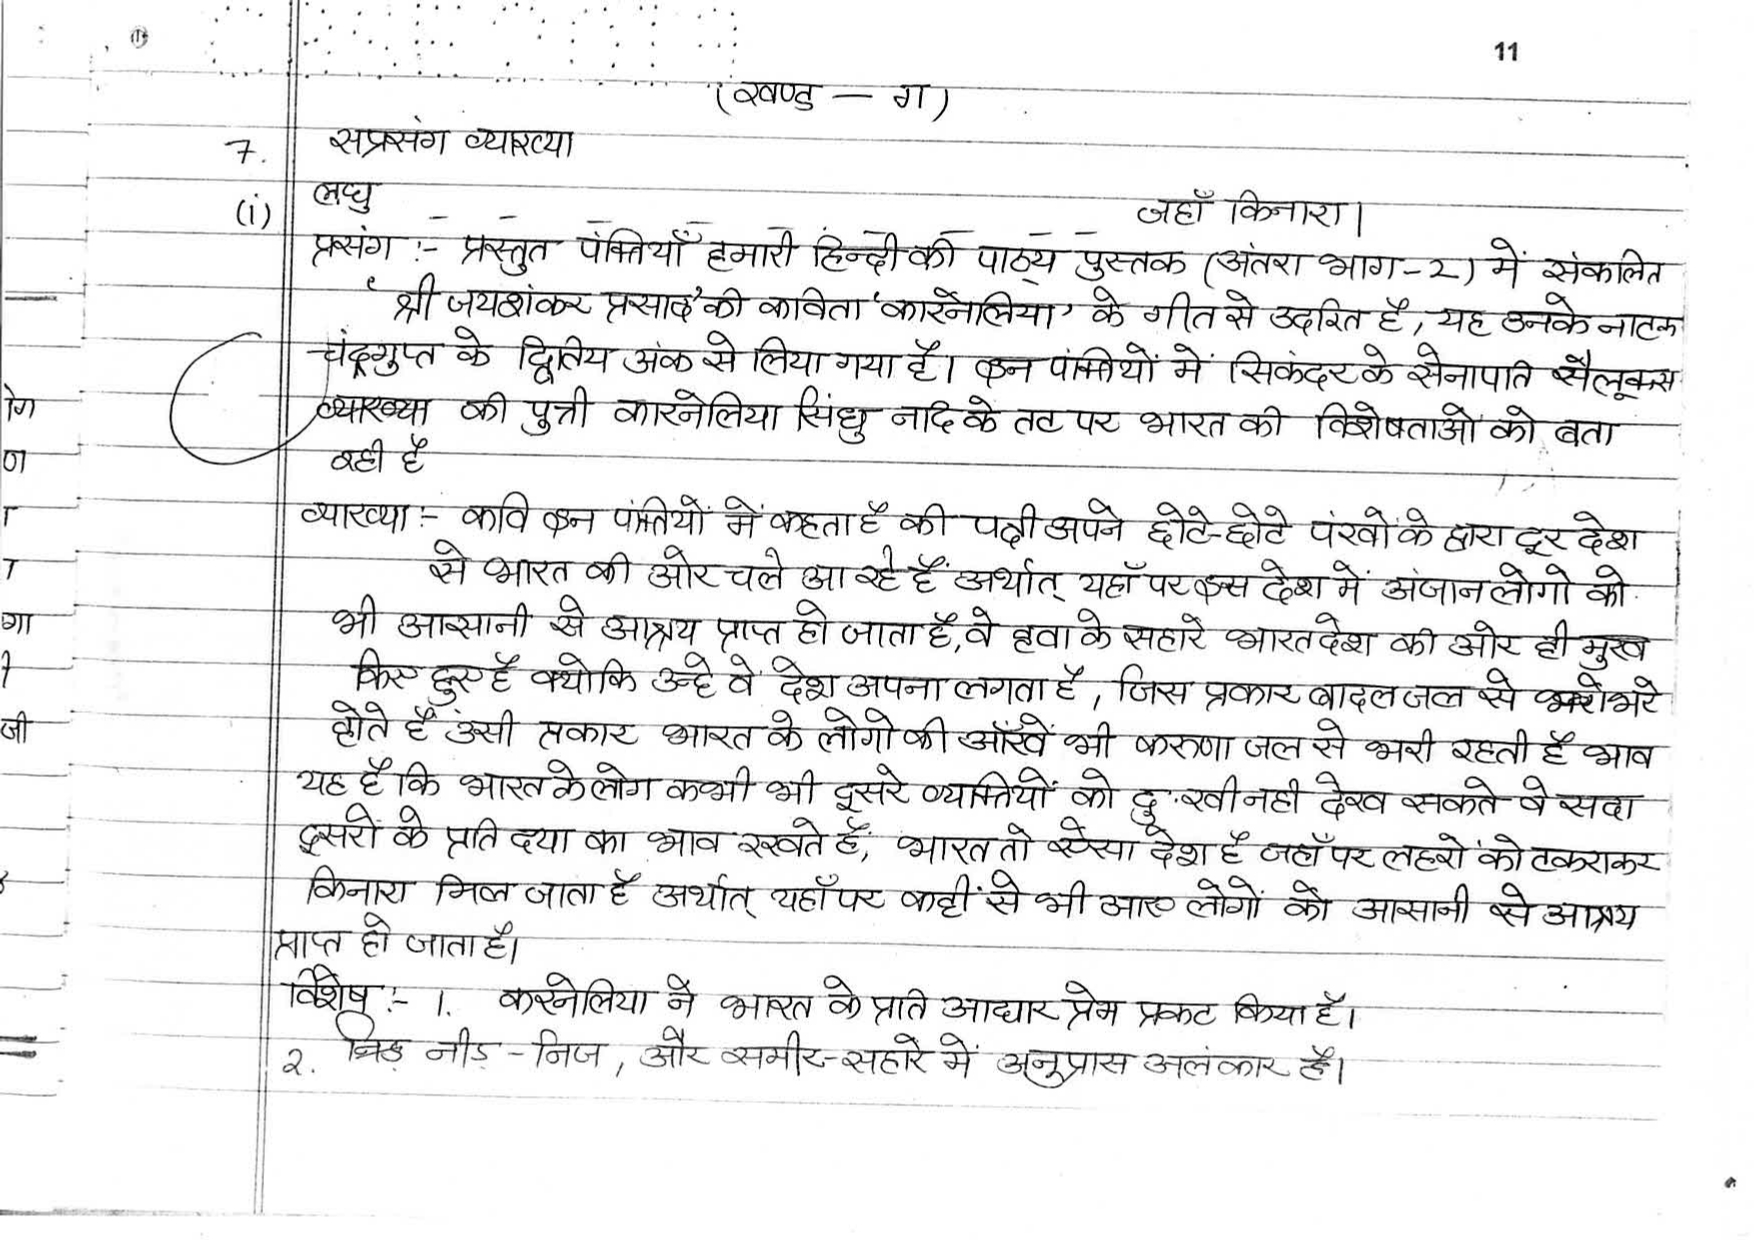 11
(खण्ड — ग)
7. सप्रसंग व्याख्या
(i) लघु — — — — — — — — जहाँ किनारा।
प्रसंग :- प्रस्तुत पंक्तियाँ हमारी हिन्दी की पाठ्य पुस्तक (अंतरा भाग-2) में संकलित
'श्री जयशंकर प्रसाद' की कविता 'कारनेलिया' के गीत से उदरित है, यह उनके नाटक
चंद्रगुप्त के द्वितिय अंक से लिया गया है। इन पंक्तियों में सिकंदर के सेनापति सैलूक्स
व्याख्या की पुत्री कारनेलिया सिंधु नदि के तट पर भारत की विशेषताओं को बता
रही है
व्याख्या :- कवि इन पंक्तियों में कहता है की पक्षी अपने छोटे-छोटे पंखों के द्वारा दूर देश
से भारत की ओर चले आ रहे हैं अर्थात् यहाँ पर इस देश में अंजान लोगो को
भी आसानी से आश्रय प्राप्त हो जाता है, वे हवा के सहारे भारत देश की ओर ही मुख
किए हुए है क्योकि उन्हे वे देश अपना लगता है, जिस प्रकार बादल जल से भरे
होते हैं उसी प्रकार भारत के लोगो की आँखें भी करुणा जल से भरी रहती है भाव
यह है कि भारत के लोग कभी भी दूसरे व्यक्तियों को दु:खी नही देख सकते वे सदा
दूसरों के प्रति दया का भाव रखते हैं, भारत तो ऐसा देश है जहाँ पर लहरों को टकराकर
किनारा मिल जाता है अर्थात् यहाँ पर कहीं से भी आए लोगों को आसानी से आश्रय
प्राप्त हो जाता है।
विशेष :- 1. करनेलिया ने भारत के प्रति आधार प्रेम प्रकट किया है।
2. नीड़ - निज, और समीर-सहारे में अनुप्रास अलंकार है।